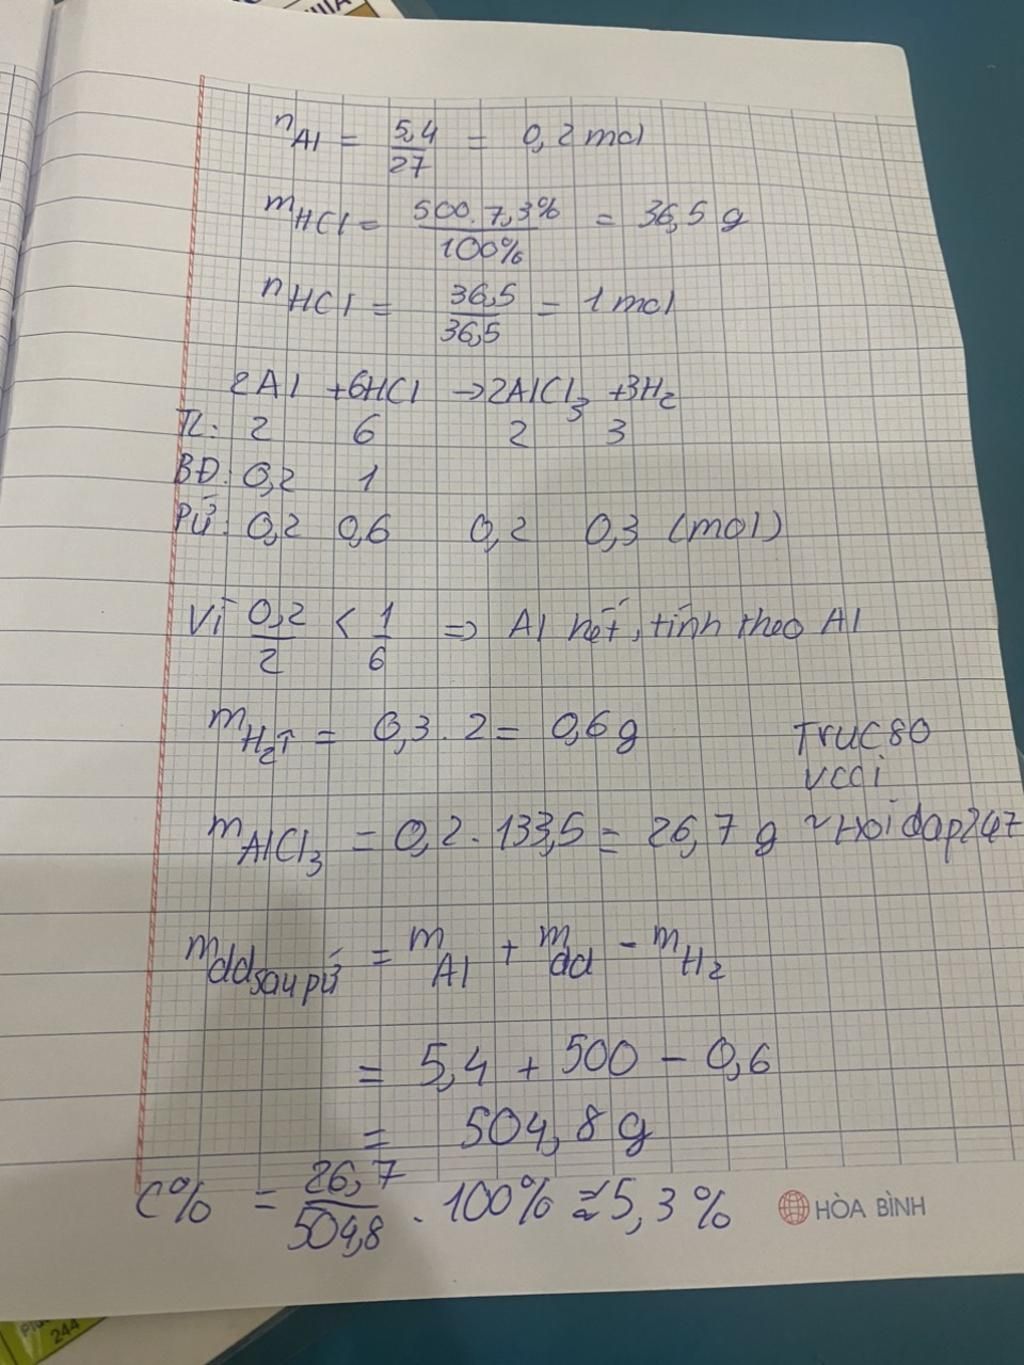 n Al = 5,4/27 = 0,2 mol
m HCl = 500.7,3%/100% = 36,5 g
n HCl = 36,5/36,5 = 1 mol
2Al +6HCl →2AlCl₃ +3H₂
TL: 2 6 2 3
BĐ: 0,2 1
PỨ: 0,2 0,6 0,2 0,3 (mol)
Vì 0,2/2 < 1/6 => Al hết, tính theo Al
m H₂↑ = 0,3 . 2 = 0,6 g
Truc80
vcci
m AlCl₃ = 0,2 . 133,5 = 26,7 g ~Hoidap247
m dd sau pứ = m Al + m dd - m H₂
= 5,4 + 500 - 0,6
= 504,8 g
C% = 26,7/504,8 . 100% ≈ 5,3%
HÒA BÌNH
244